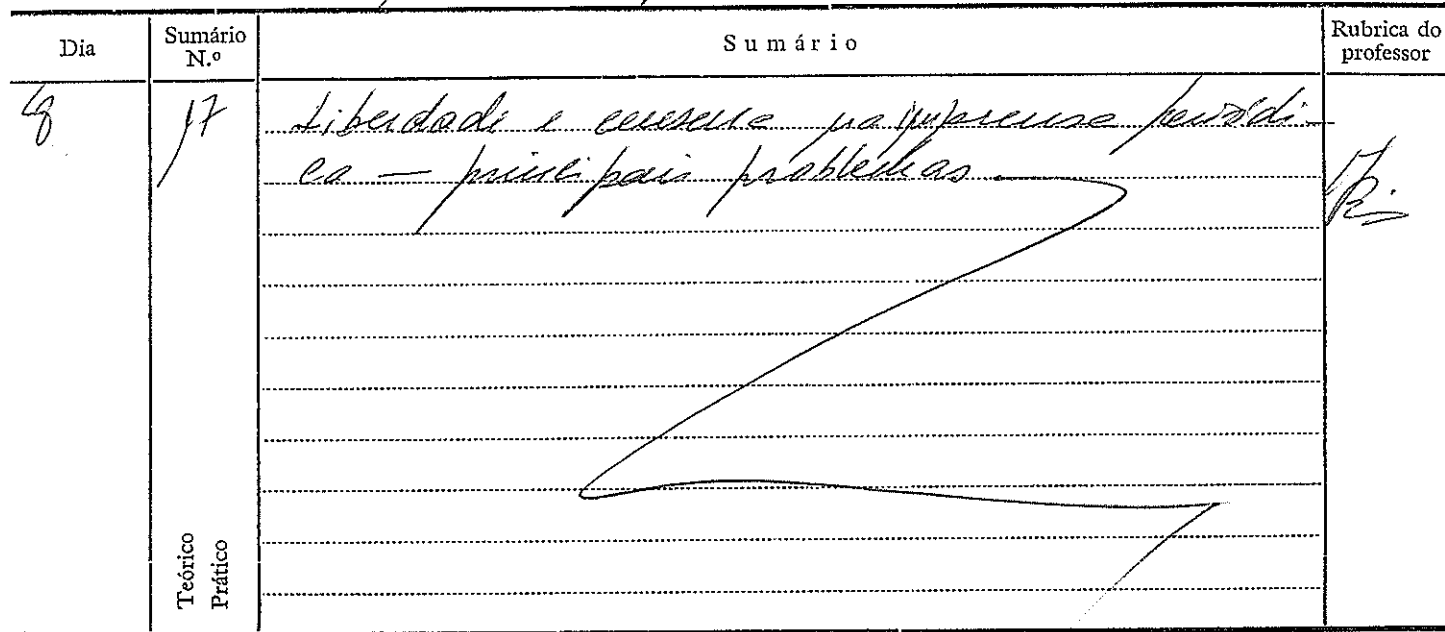 Dia
Sumário N.º
Sumário
Rubrica do professor
8
17
Liberdade e censura na imprensa periódi-
ca — principais problemas
Teórico
Prático